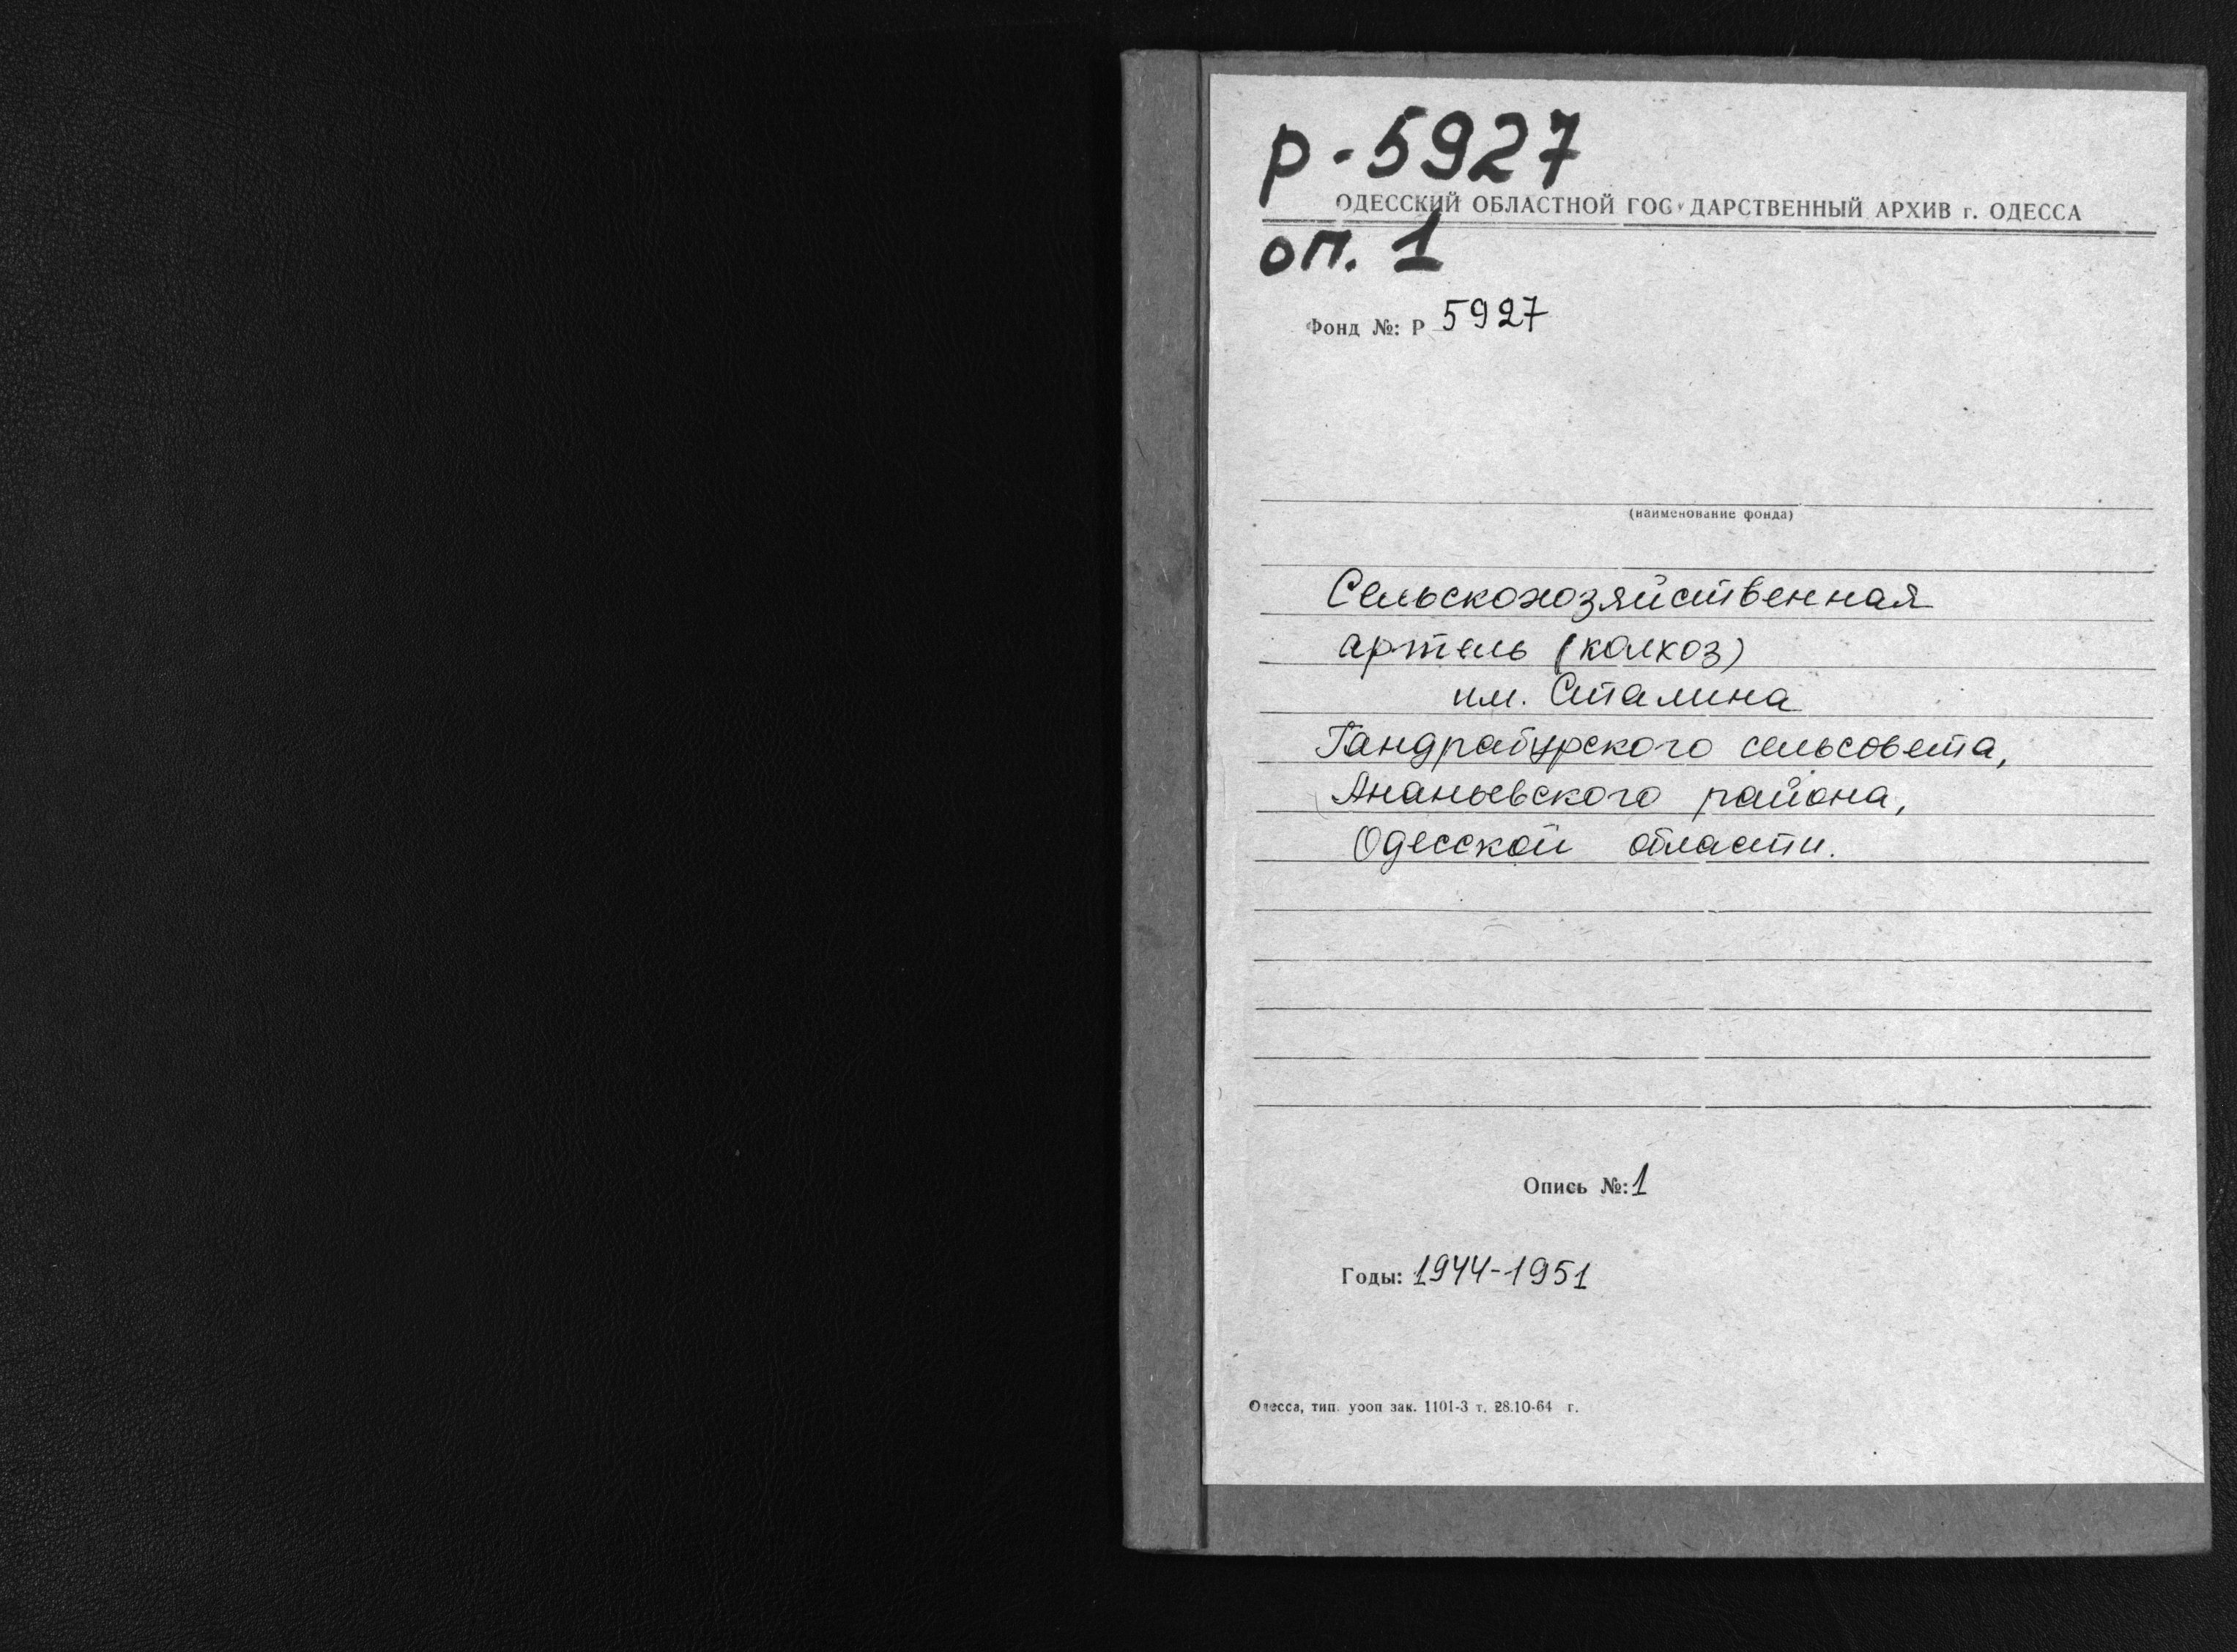 р-5927
ОДЕССКИЙ ОБЛАСТНОЙ ГОС ДАРСТВЕННЫЙ АРХИВ г. ОДЕССА
оп. 1
Фонд №: Р 5927
(наименование фонда)
Сельскохозяйственная
артель (колхоз)
им. Сталина
Гандрабурского сельсовета,
Ананьевского района,
Одесской области.
Опись №: 1
Годы: 1944-1951
Одесса, тип. уооп зак. 1101-3 т. 28.10-64 г.